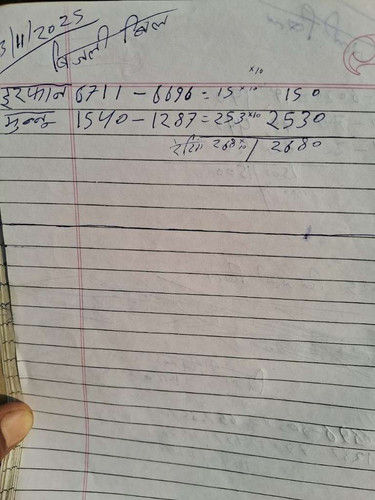 3/11/2025
बिजली बिल
x10
इरफान 6711 - 6696 = 15 x10 150
मुन्नू 1540 - 1287 = 253 x10 2530
268 x10 / 2680